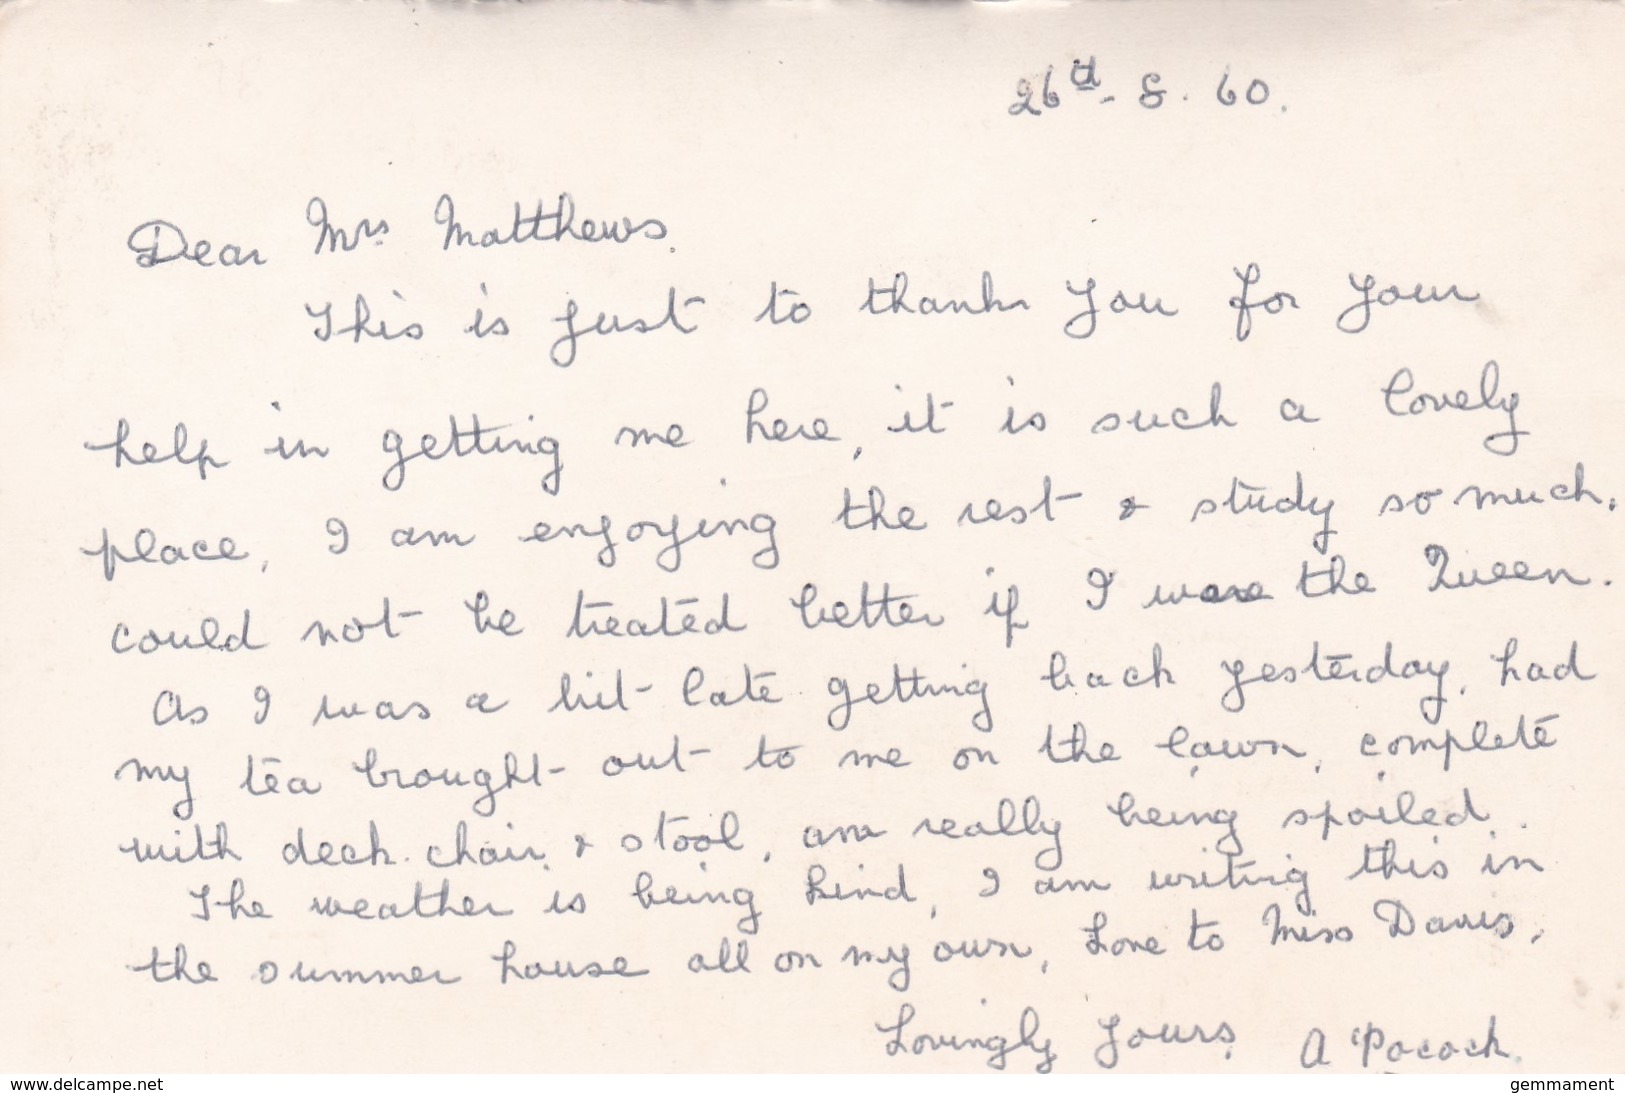 26th - 8. 60.
Dear Mrs Matthews.
This is just to thank you for your
help in getting me here, it is such a lovely
place, I am enjoying the rest & study so much.
could not be treated better if I were the Queen.
As I was a bit late getting back yesterday, had
my tea brought out to me on the lawn, complete
with deck chair & stool, am really being spoiled.
The weather is being kind, I am writing this in
the summer house all on my own, Love to Miss Davis,
Lovingly Yours, A Pocock.
www.delcampe.net
gemmament